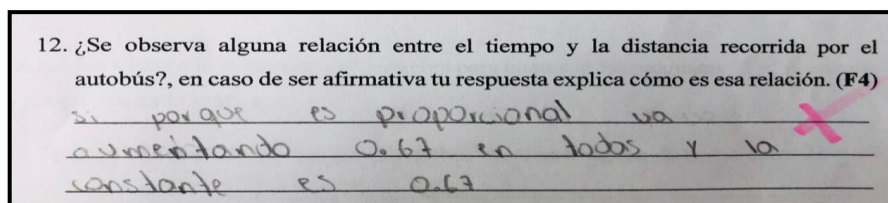 12. ¿Se observa alguna relación entre el tiempo y la distancia recorrida por el
autobús?, en caso de ser afirmativa tu respuesta explica cómo es esa relación. (F4)
si porque es proporcional va
aumentando 0.67 en todos y la
constante es 0.67